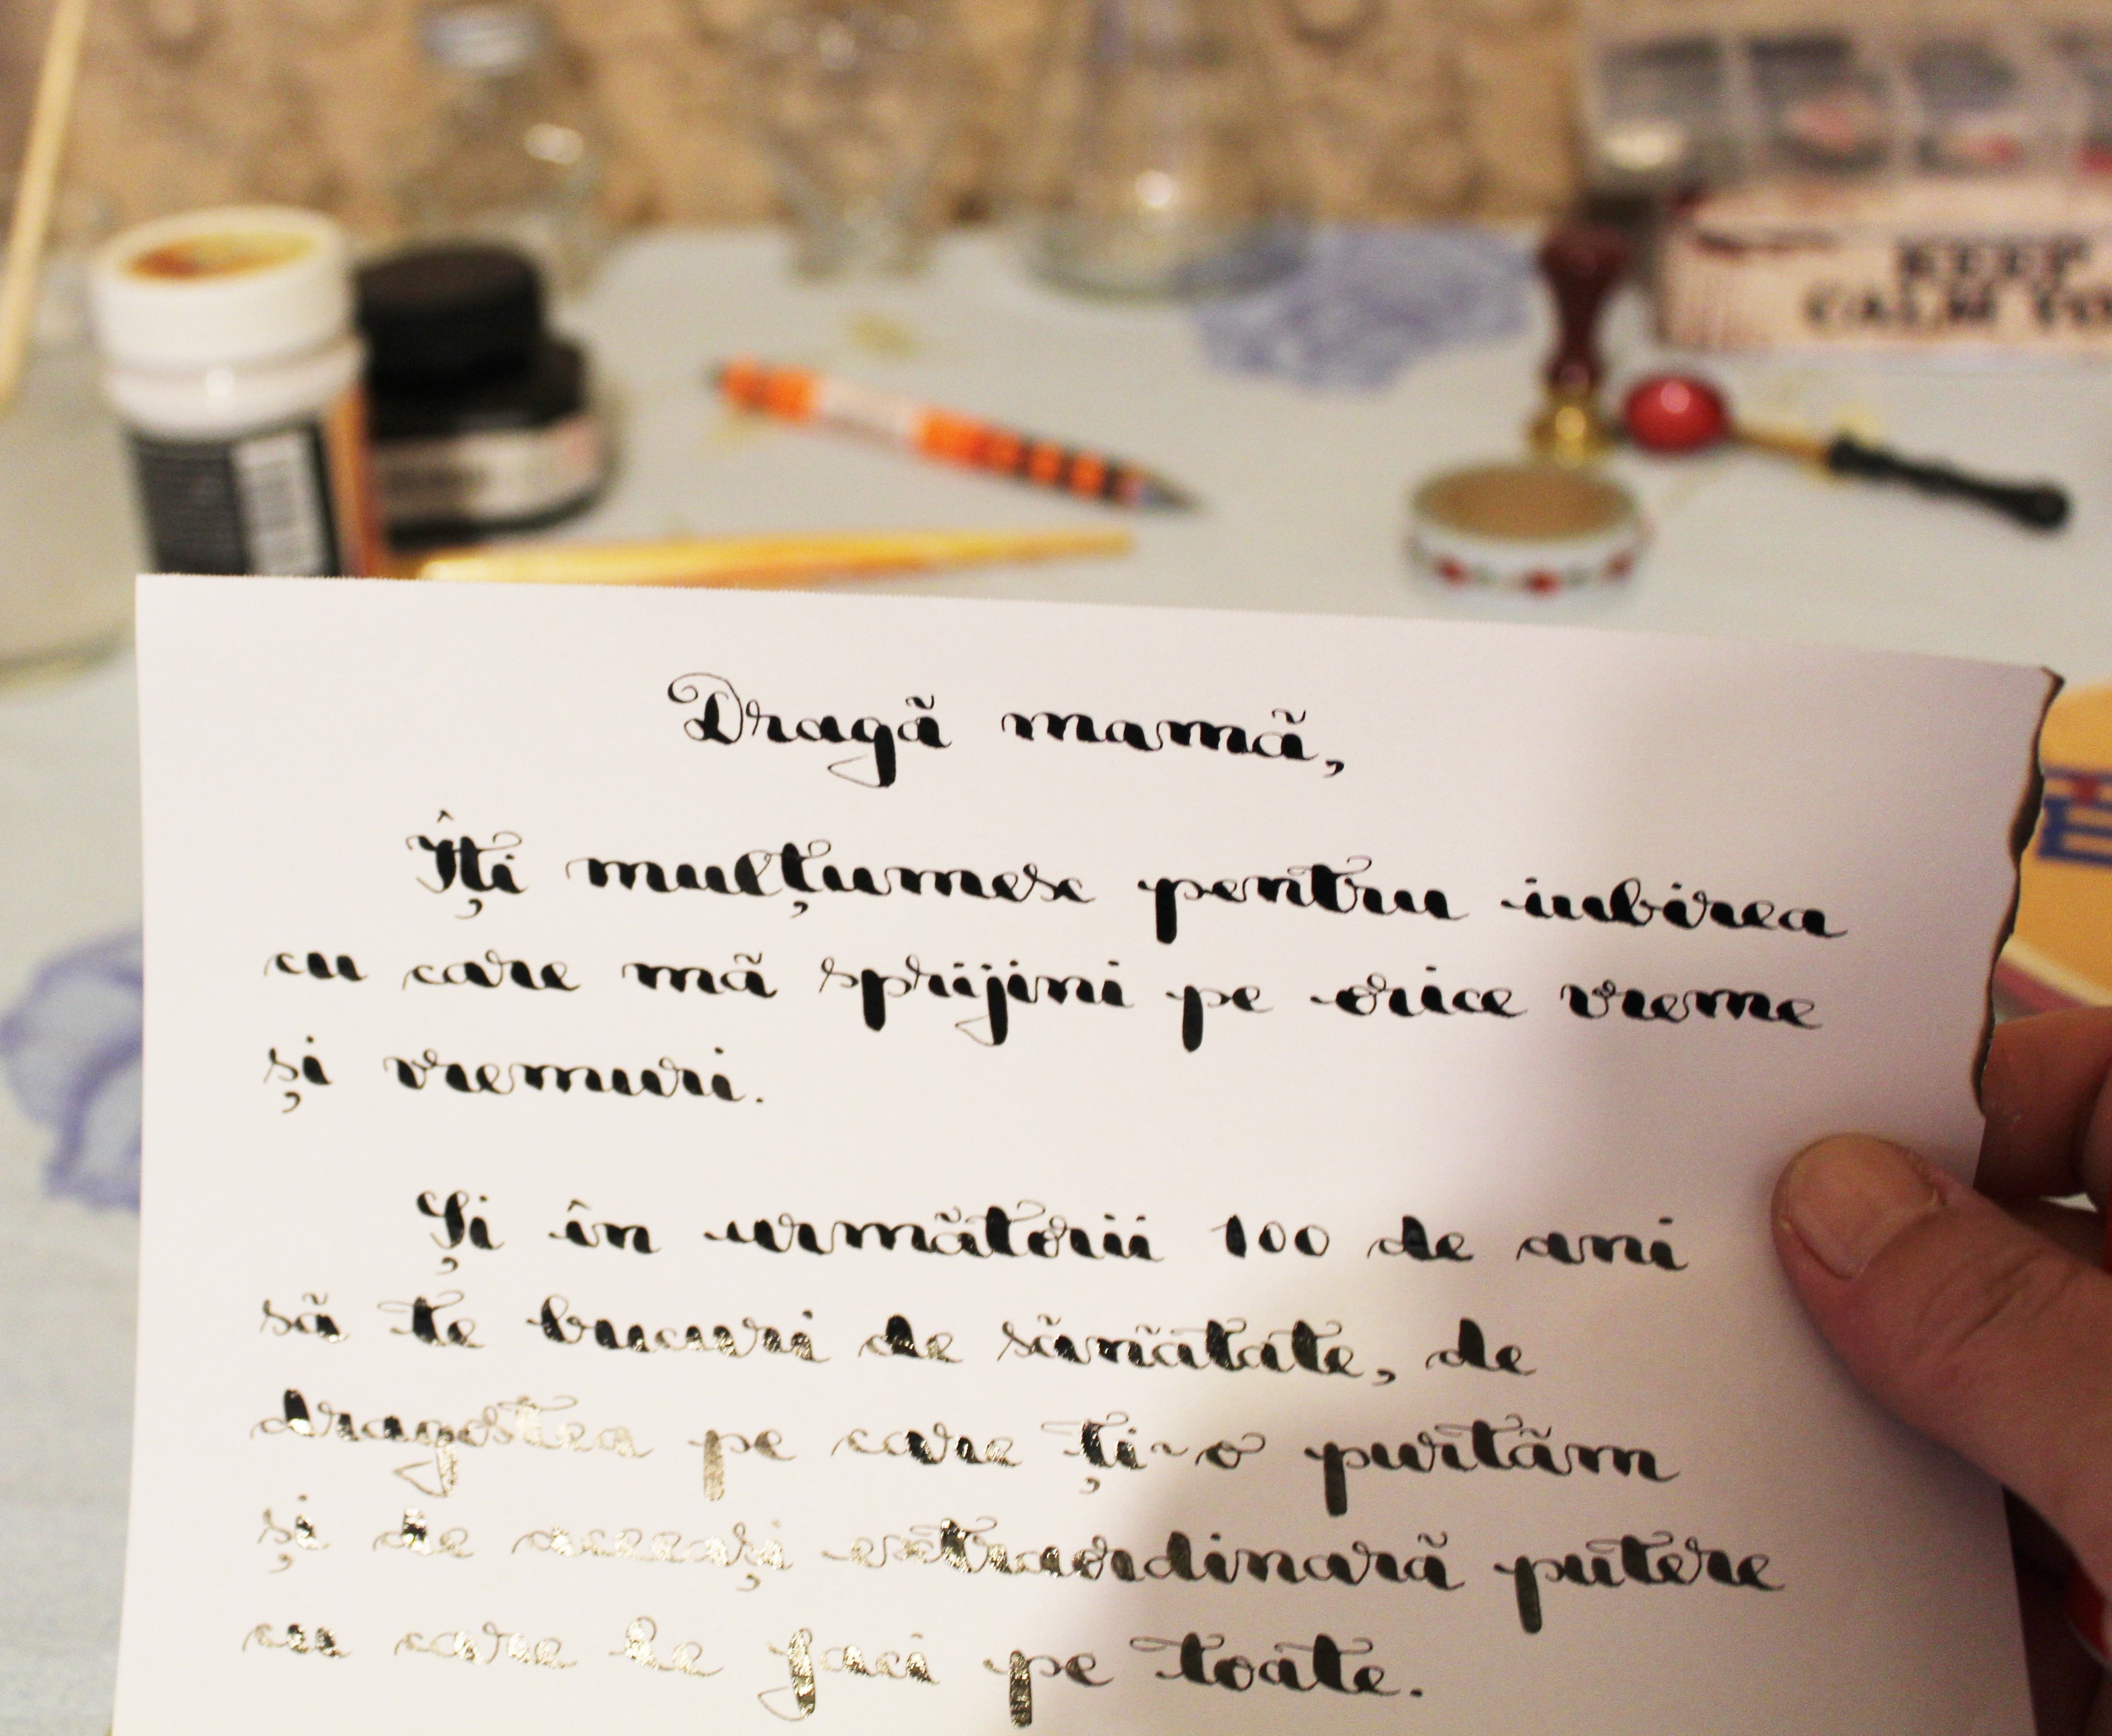 KEEP
CALM
Dragă mamă,
Îți mulțumesc pentru iubirea
cu care mă sprijini pe orice vreme
și vremuri.
Și în următorii 100 de ani
să te bucuri de sănătate, de
dragostea pe care ți-o purtăm
și de aceeași extraordinară putere
cu care le faci pe toate.